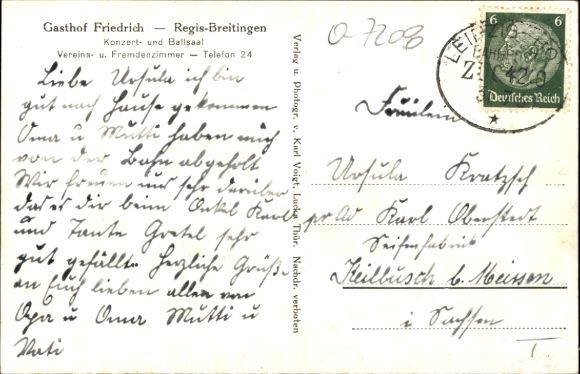 Gasthof Friedrich — Regis-Breitingen
Konzert- und Ballsaal
Vereins- u. Fremdenzimmer — Telefon 24
Liebe Ursula ich bin
gut nach Hause gekommen
Oma u Mutti haben mich
von der Bahn abgeholt
Wir freuen uns sehr darüber
das es dir beim Onkel Karl
und Tante Gretel sehr
gut gefällt. Herzliche Grüße
an Euch lieben allen von
Opa u Oma Mutti u
Vati
Verlag u. Photogr. v. Karl Voigt, Lucka Thür. Nachdr. verboten
6 6
Deutsches Reich
LEIPZIG
Fräulein
Ursula Kratzsch
pr Ad Karl Oberstedt
Seifenfabrik
Keilbusch b. Meissen
i Sachsen